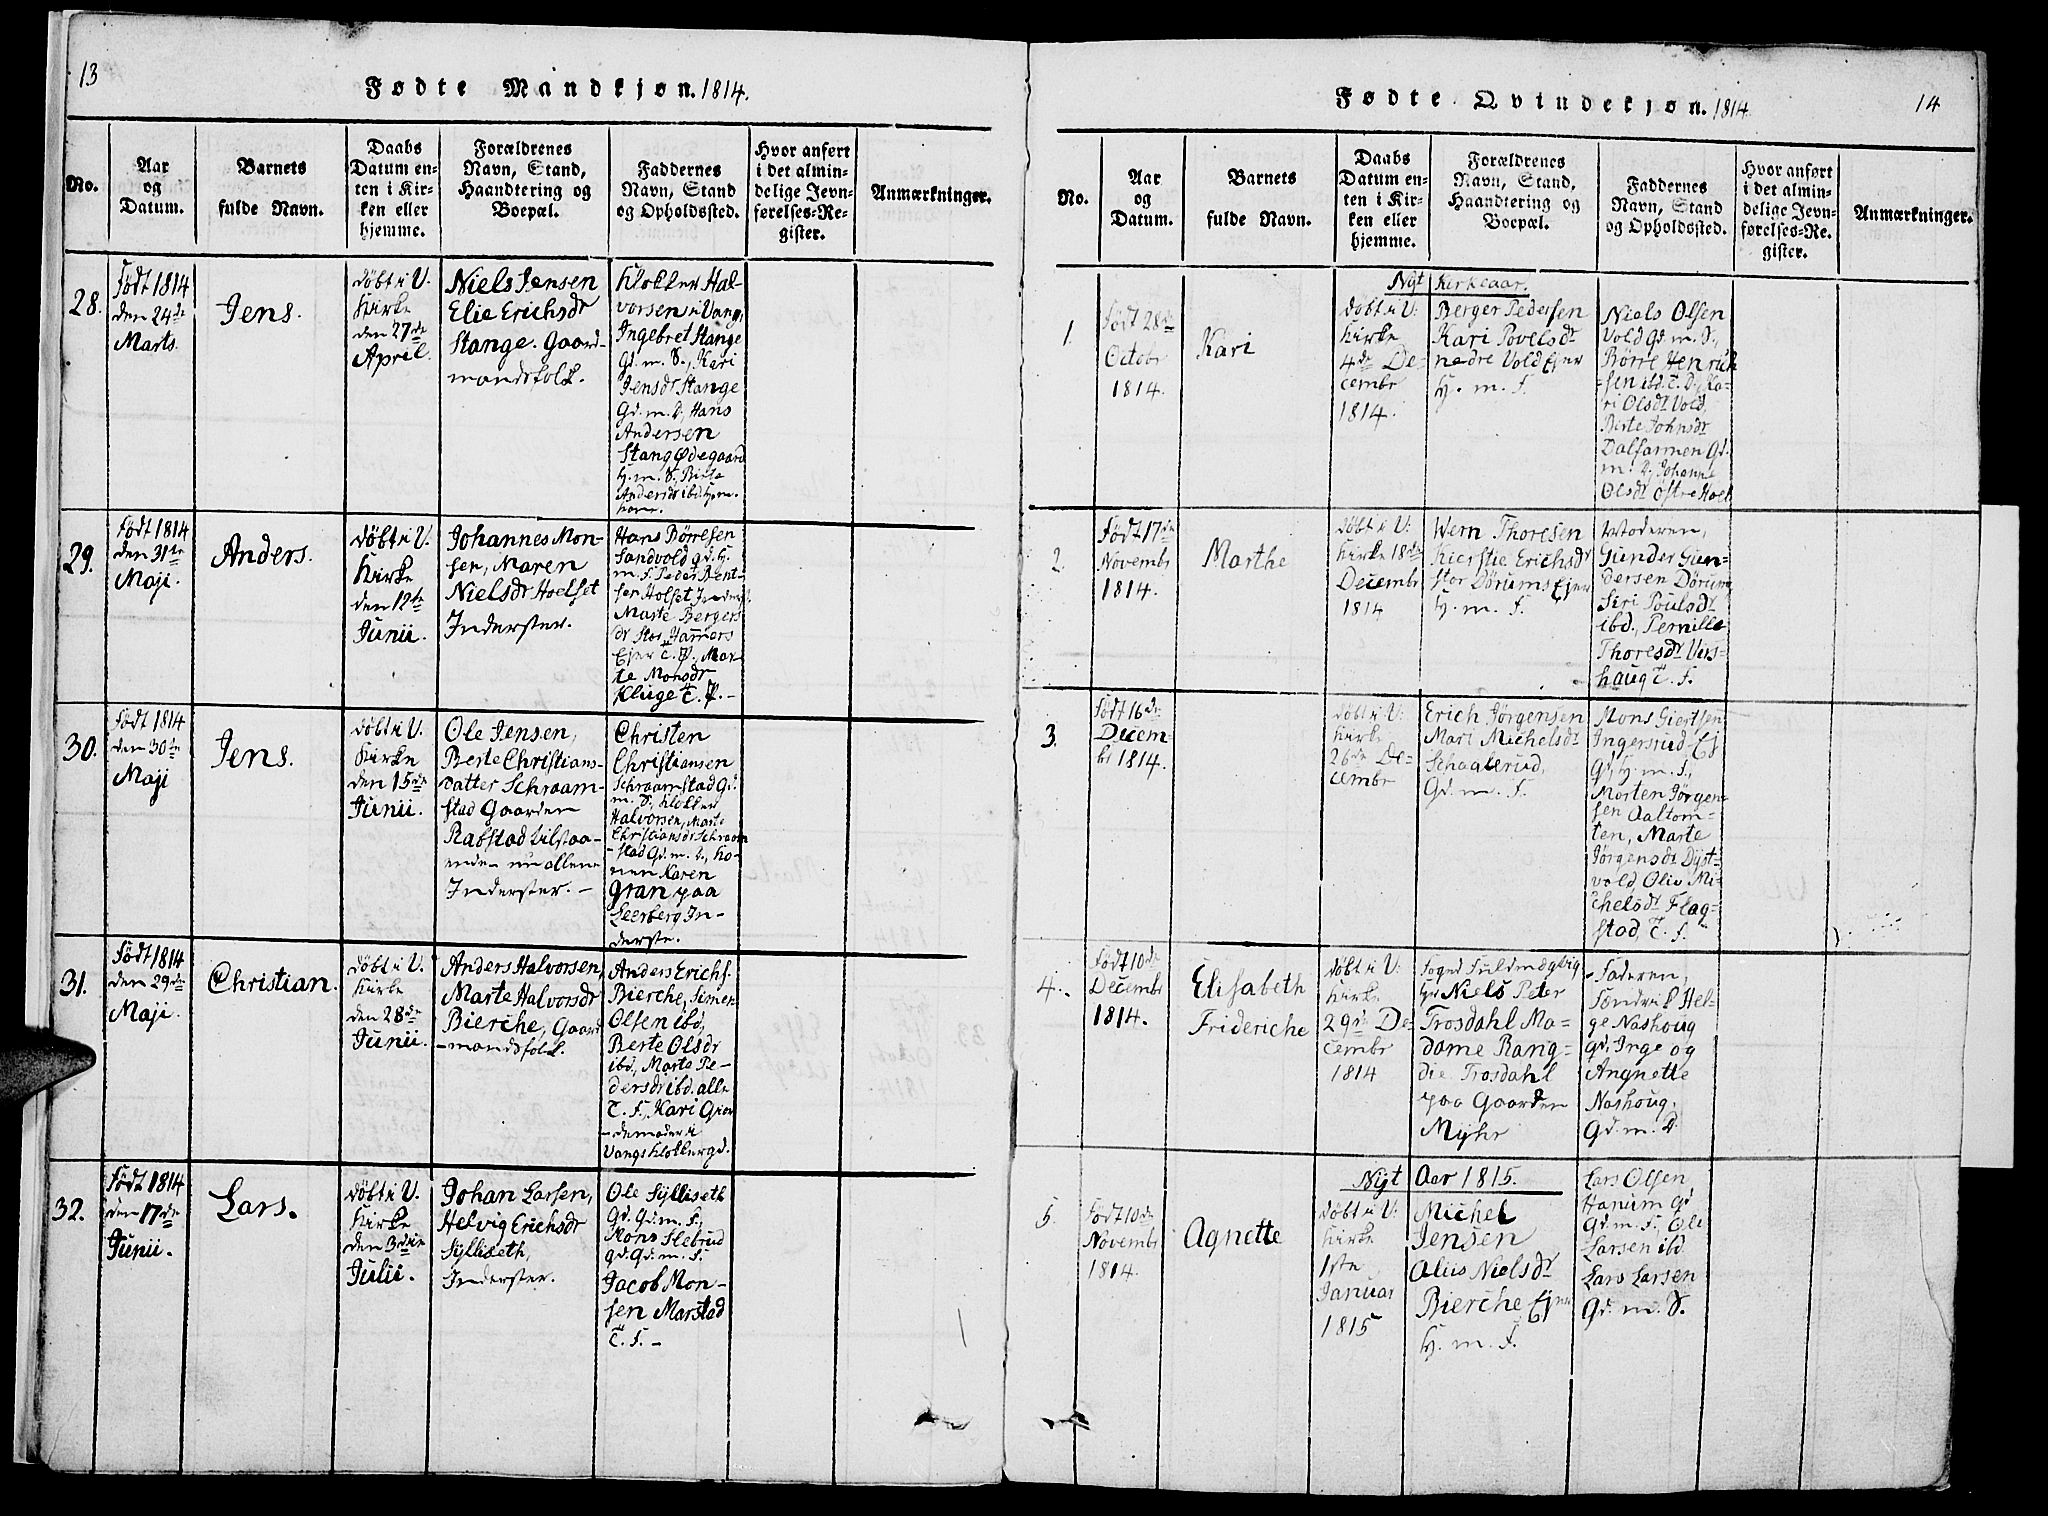 13
Fødte Mandkjøn. 1814.
No.
Aar
og
Datum.
Barnets
fulde Navn.
Daabs
Datum en-
ten i Kir-
ken eller
hjemme.
Forældrenes
Navn, Stand,
Haandtering og
Boepæl.
Faddernes
Navn, Stand
og Opholdssted.
Hvor anført
i det almin-
delige Jevn-
førelses-Re-
gister.
Anmærkninger.
28.
Født 1814
den 24de
Marts.
Jens.
døbt i V.
Kirke
den 27de
April.
Niels Jensen
Elie Erichsdr
Stange. Gaard-
mandsfolk.
Klokker Hal-
vorsen i Vang,
Ingebret Stange
Gd. m. S., Kari
Jensdr Stange
Gd. m. D., Hans
Andersen
Stang Ødegaard
H. m. S., Birte
Andersdr ibd. H. m.
kone.
29.
Født 1814
den 31te
Maji.
Anders.
døbt i V.
Kirke
den 12te
Junii.
Johannes Mon-
sen, Maren
Nielsdr Hoelset
Inderster.
Hans Børresen
Sandvold gd. H.
m. S. Peder Bent-
sen Holset Inderst.
Marte Bergers
dr Stor Hamers
Ejer T. P., Mar-
te Monsdr
Kluge T. P. –
30.
Født 1814
den 30te
Maji
Jens.
døbt i V.
Kirke
den 15de
Junii.
Ole Jensen,
Berte Christians-
datter Schraam-
stad Gaarden
Rabstad tilstaa-
ende – nu allene
Inderster. –
Christen
Christiansen
Schraamstad Gd.
m. S., Klokker
Halvorsen, Marte
Christiansdr Schraam
-stad Gd. m. D., Ko-
nen Karen
Gran paa
Leerberg In-
derste.
31.
Født 1814
den 29de
Maji.
Christian.
døbt i V.
Kirke
den 28de
Junii.
Anders Halvorsen,
Marte Halvorsdr
Bierche, Gaard
-mandsfolk.
Anders Erichs.
Bierche, Simen
Olsen ibd,
Berte Olsdr
ibd, Marte Pe-
dersdr ibd. alle
T. F., Kari Gior
-demoder i
Vangs Klokkergd.
32.
Født 1814
den 17de
Junii.
Lars.
døbt i V.
Kirke
den 3die
Julii.
Johan Larsen,
Helvig Erichsdr
Sylliseth,
Inderster.
Ole Sylliseth
Gd. Gd. m. S.,
Mons Slebrud
gd. Gd. m. S.
Jacob Mon-
sen Marstad
T. F. –
Fødte Qvindekjøn. 1814
14
No.
Aar
og
Datum.
Barnets
fulde Navn.
Daabs
Datum en-
ten i Kir-
ken eller
hjemme.
Forældrenes
Navn, Stand,
Haandtering og
Boepæl.
Faddernes
Navn, Stand
og Opholdssted.
Hvor anført
i det almin-
delige Jevn-
førelses-Re-
gister.
Anmærkninger.
Nyt Kirkeaar.
1
Født 28de
Octobr
1814.
Kari
døbt i V:
Kirke
4de De-
cembr
1814.
Berger Pedersen
Kari Povelsdr
nedre Vold Ejer
H. m. F.
Niels Olsen
Vold Gd. m. S.,
Børre Henrich
-sen ibd. T. D., Ka-
ri Olsdr Vold,
Berte Johnsdr
Dalfarmen Gd.
m. D., Johanne
Olsdr Østre Hoel
2.
Født 17de
Novembr
1814.
Marthe
døbt i V:
Kirke 18de
Decembr
1814
Wern Thoresen
Kierstie Erichsdr
Stor Dørums Ejer
H. m. F.
Moderen,
Gunder Gun-
dersen Dørum,
Siri Poulsdr
ibd., Pernille
Thoresdr Vers-
haug T. F.
3.
Født 16de
Decem-
br 1814.
døbt i V:
Kirke
26de De-
cembr
Erich Jørgensen
Mari Michelsdr
Schaalerud,
Gd. m. F.
Mons Giertsen
Ingersrud Ej
Gd, H. m. F.,
Morten Jørgen-
sen Aaltom-
ten, Marte
Jørgensdr Dyst-
vold, Oliv Mi-
chelsdr Flag-
stad, T. F.
4.
Født 10de
Decembr
1814.
Elisabeth
Friderìche
døbt i V:
Kirke
29de De-
cembr
1814
Foged Fuldmægtig
Hr Niels Peter
Trosdahl Ma-
dame Rang-
die Trosdahl
paa Gaarden
Myhr
Faderen,
Fændrik Hel-
ge Nashoug
gd. Inge og
Angnette
Nashoug.
Gd. m. D.
Nyt Aar 1815.
5.
Født 10de
Novembr
1814.
Agnette
døbt i V:
Kirke
1ste
Januar
1815
Michel
Jensen
Oliis Nielsdr
Bierche, Ejer
H. m. F.
Lars Olsen
Hanum Gd
Gd. m. S. Ole
Larsen ibd
Lars Larsen
Gd. m. S.